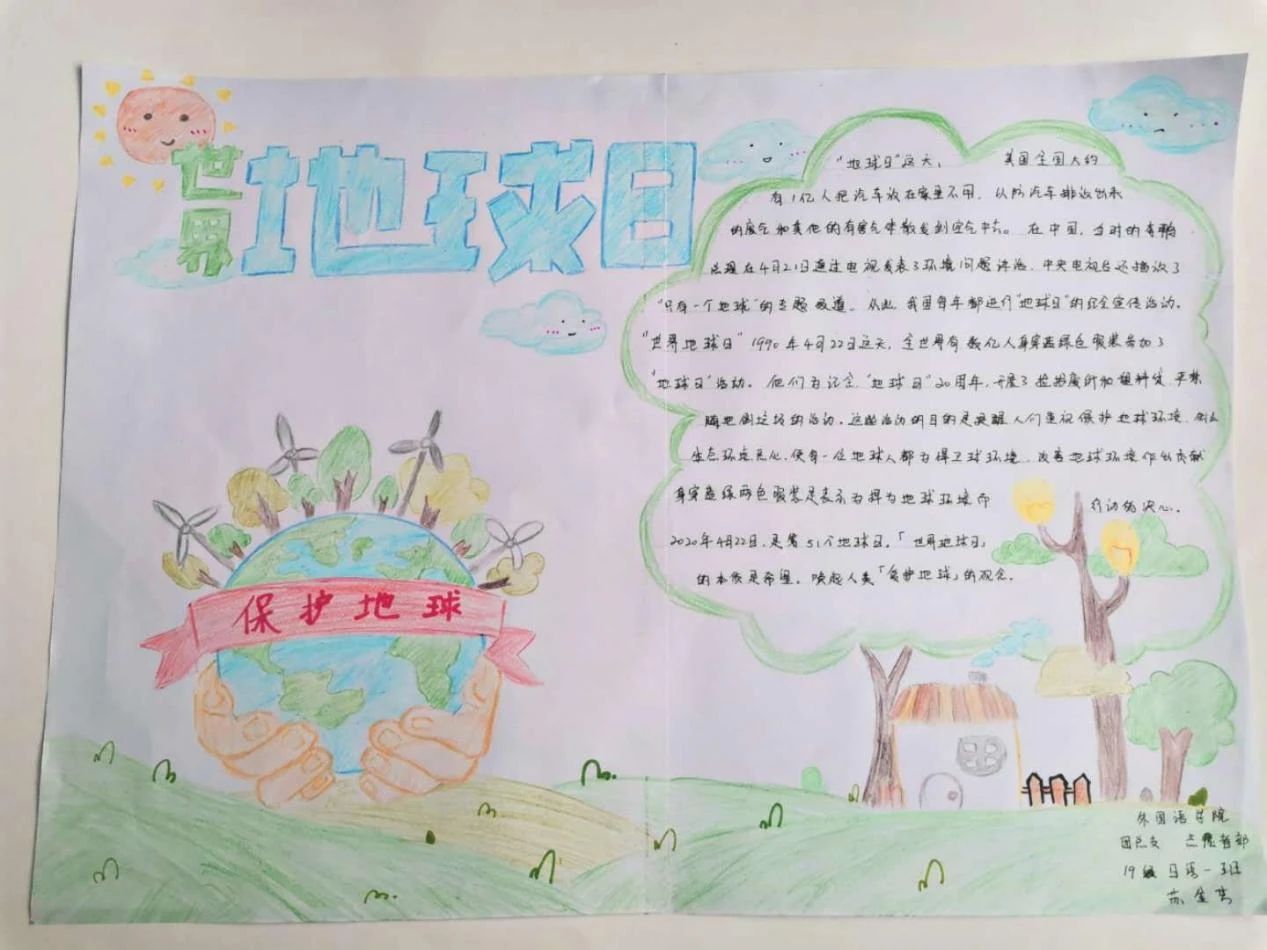 世界
地球日
保护地球
"地球日"这天， 美国全国大约
有1亿人把汽车放在家里不用，以防汽车排放出来
的废气和其他的有害气体散发到空气中去。在中国，当时的李鹏
总理在4月21日通过电视发表了环境问题讲话，中央电视台还播放了
"只有一个地球"的专题报道。从此，我国每年都进行"地球日"的纪念宣传活动。
"世界地球日"1990年4月22日这天，全世界有数亿人身穿蓝绿色服装参加了
"地球日"活动。他们为纪念"地球日"20周年，开展了捡拾废纸和塑料袋，严禁
随地倒垃圾的活动。这些活动的目的是唤醒人们重视保护地球环境，
生态环境 使每一位地球人都为捍卫球环境，改善地球环境作出贡献
身穿蓝绿两色服装是表示为捍为地球环境而 行动的决心。
2020年4月22日，是第51个地球日，「世界地球日」
的本质是希望，唤起人类「保护地球」的观念。
外国语学院
团总支 志愿者部
19级 日语一班
苏